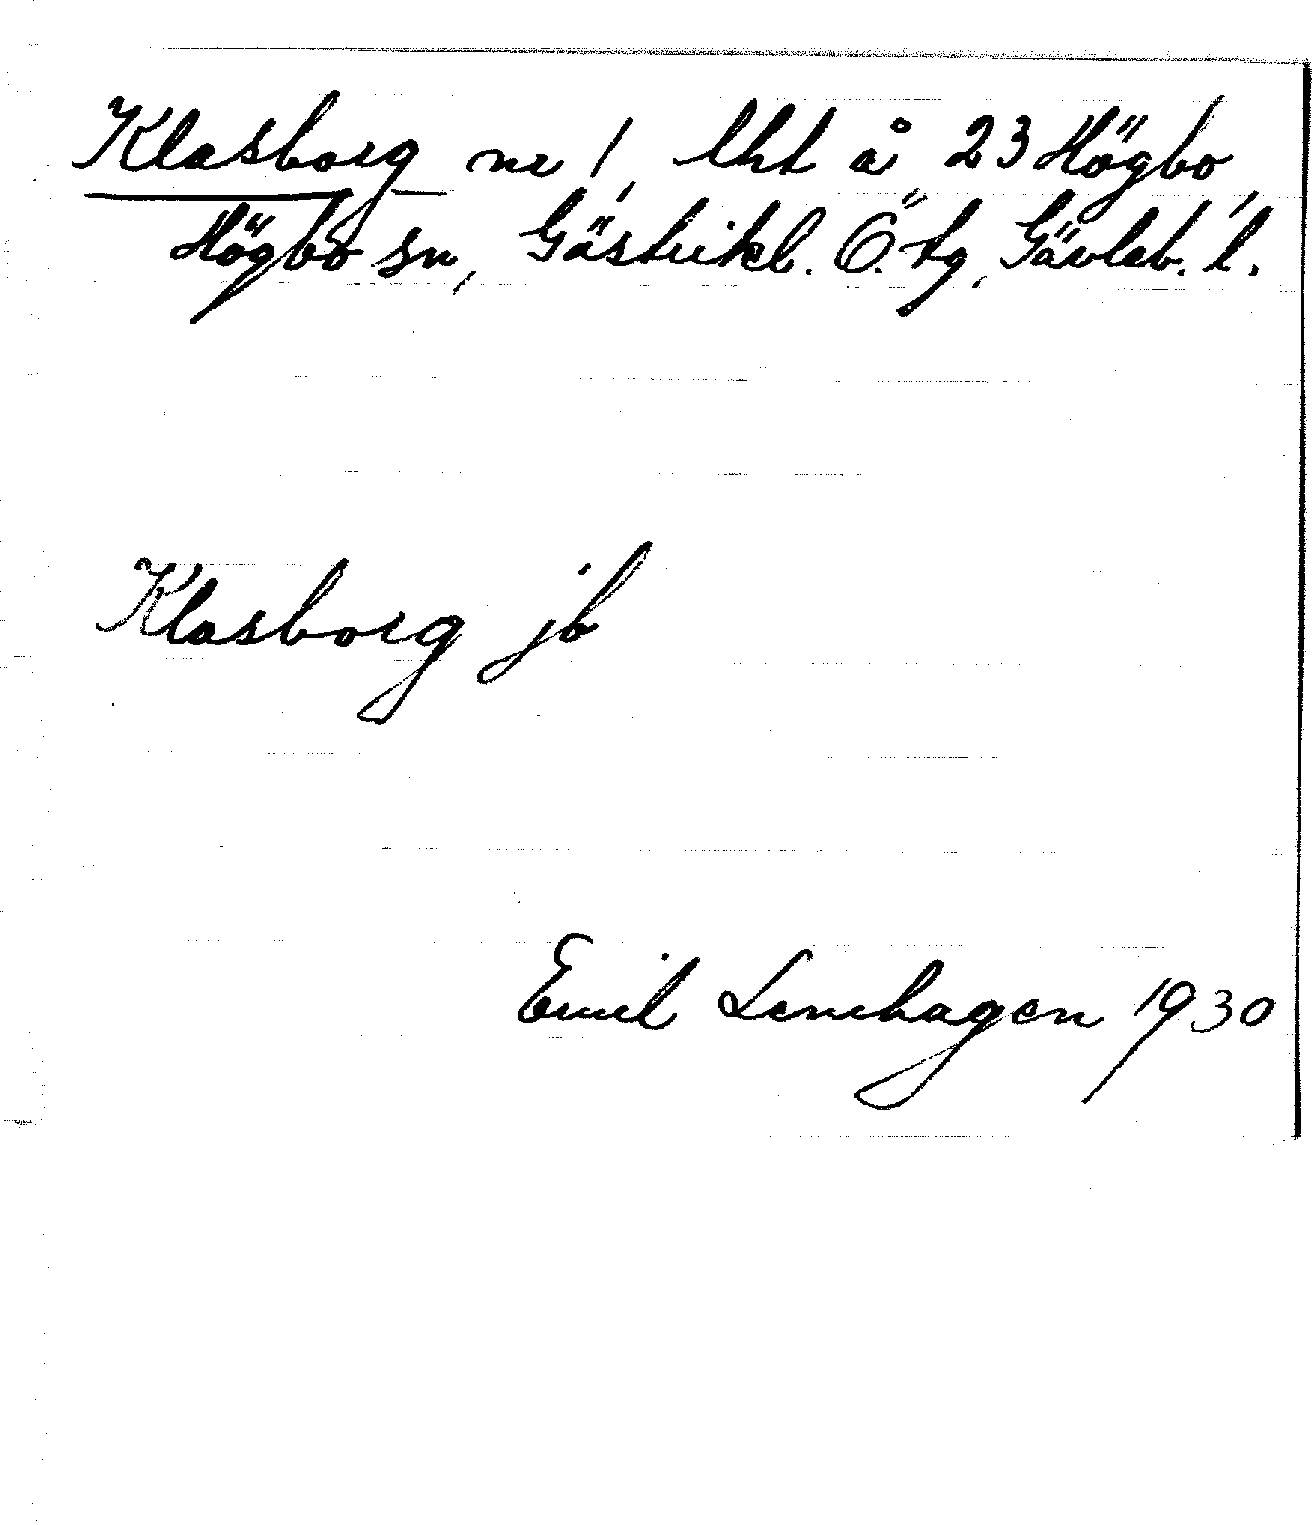 Klasborg nr 1, lht å 23 Högbo,
Högbo sn, Gästrikl. Ö. tg, Gävleb. l.
Klasborg jb
Emil Lenhagen 1930